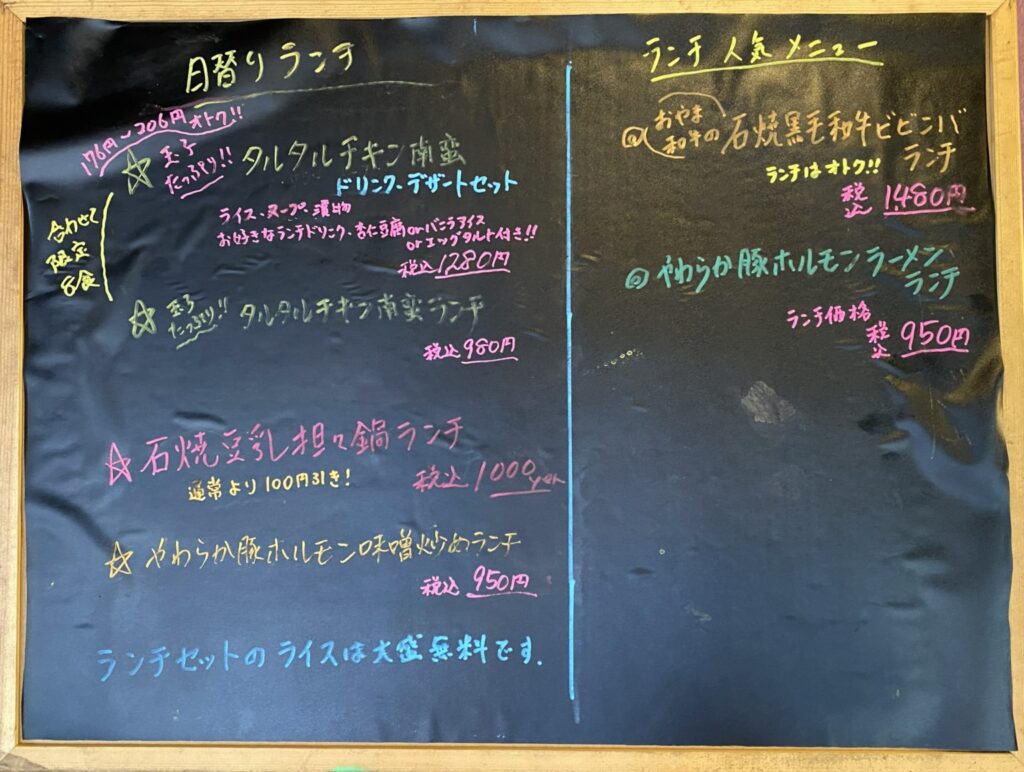 日替りランチ
176円〜206円オトク!!
☆ 玉子たっぷり!! タルタルチキン南蛮
ドリンク、デザートセット
合わせて
限定
8食
ライス、スープ、漬物
お好きなランチドリンク、杏仁豆腐orバニラアイス
orエッグタルト付き!!
税込1280円
☆ 玉子たっぷり!! タルタルチキン南蛮ランチ
税込 980円
☆ 石焼豆乳担々鍋ランチ
通常より100円引き!
税込 1000yen
☆ やわらか豚ホルモン味噌炒めランチ
税込 950円
ランチセットのライスは大盛無料です.
ランチ人気メニュー
@おやま和牛の石焼黒毛和牛ビビンバ
ランチ
ランチはオトク!!
税込 1480円
@やわらか豚ホルモンラーメン
ランチ
ランチ価格
税込 950円